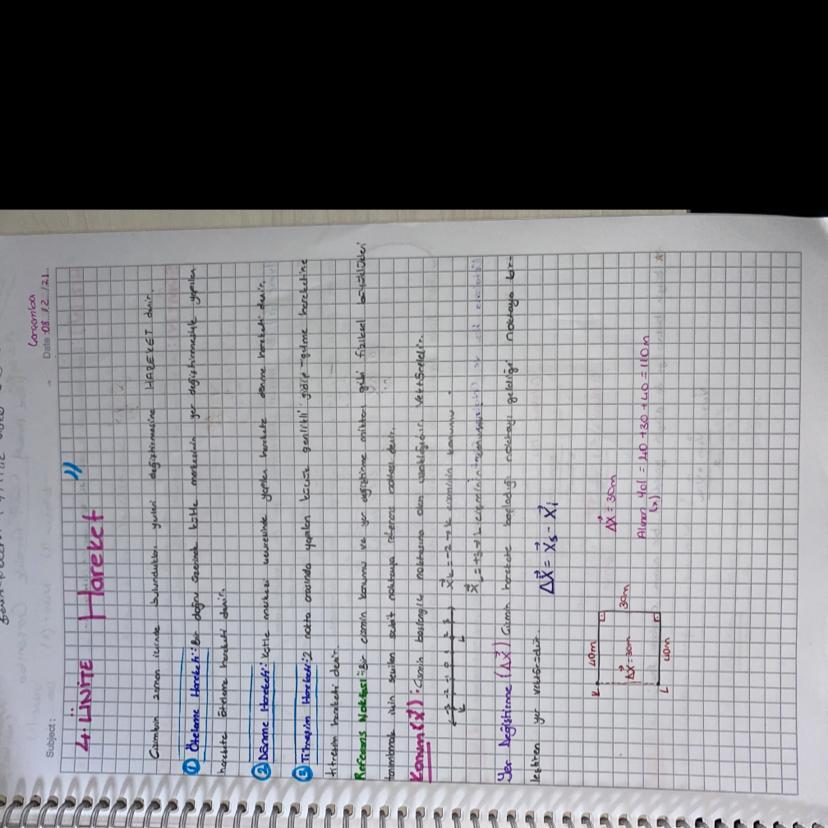 Subject:
Çarşamba
Date: 08/12/21
4. ÜNİTE Hareket
Cismin zaman içinde bulunduğu yerleri değiştirmesine HAREKET denir.
① Öteleme Hareketi: Bir doğru üzerinde kütle merkezinin yer değiştirmesiyle yapılan
harekete öteleme hareketi denir.
② Dönme Hareketi: Kütle merkezi çevresinde yapılan harekete dönme hareketi denir.
③ Titreşim Hareketi: 2 nokta arasında yapılan küçük genlikli gidip-gelme hareketine
titreşim hareketi denir.
Referans Noktası: Bir cismin konumu ve yer değiştirme miktarı gibi fiziksel büyüklükleri
tanımlamak için seçilen sabit noktaya referans noktası denir.
Konum (x⃗): Cismin başlangıç noktasına olan uzaklığıdır. Vektöreldir.
-3 -2 -1 0 1 2 3
x⃗ₖ = -2 → K cismin konumu.
x⃗L = +3 → L
Yer Değiştirme (Δx⃗) Cismin harekete başladığı noktayı geldiği noktaya bir-
leştiren yer vektörüdür.
Δx⃗ = x⃗s - x⃗i
K 40m
Δx⃗ = 30m 30m
L 40m
Δx⃗ = 30m
Alınan Yol = 40 + 30 + 40 = 110m
(x)